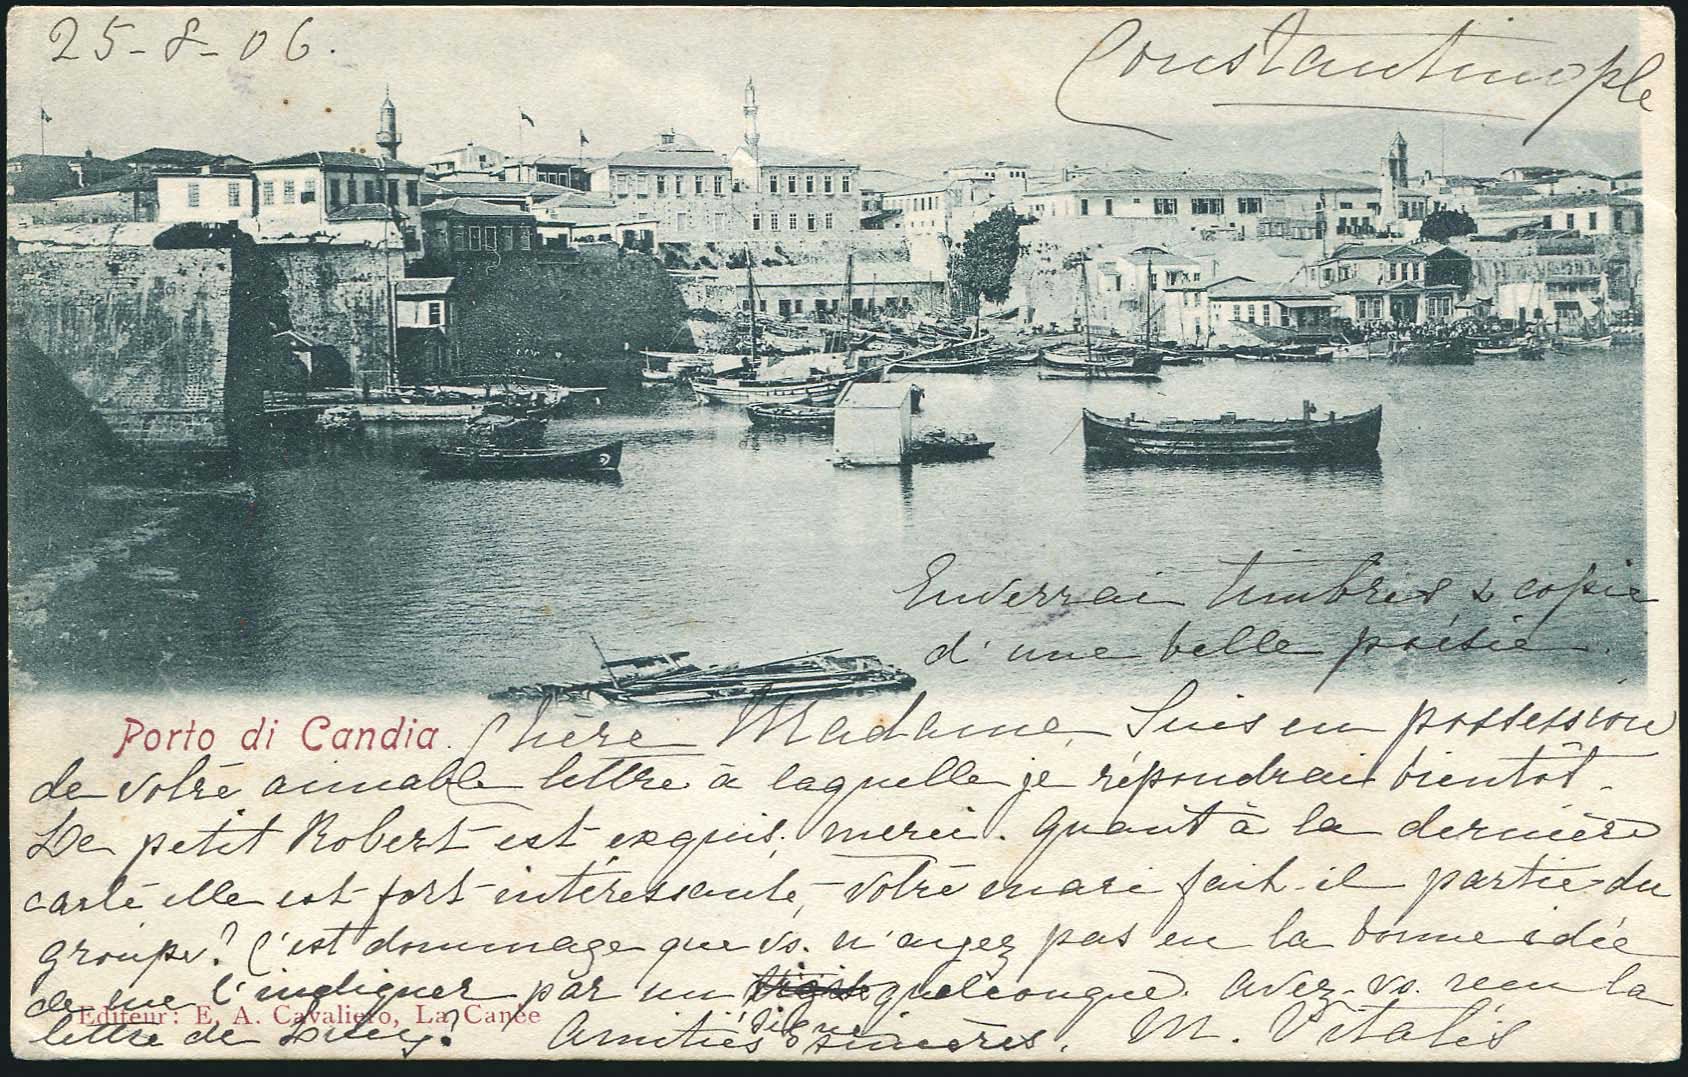 25-8-06.
Constantinople
Enverrai timbres & copie
d'une belle poésie.
Porto di Candia.
Chère Madame, Suis en possession
de votre aimable lettre à laquelle je répondrai bientôt.
Le petit Robert est exquis. merci. quant à la dernière
carte elle est fort intéressante, votre mari fait-il partie du
groupe? C'est dommage que vs. n'ayez pas eu la bonne idée
de me l'indiquer par un signe quelconque. avez-vs. reçu la
Editeur: E. A. Cavaliero, La Canée
lettre de ? Amitiés sincères. M. Vitalis